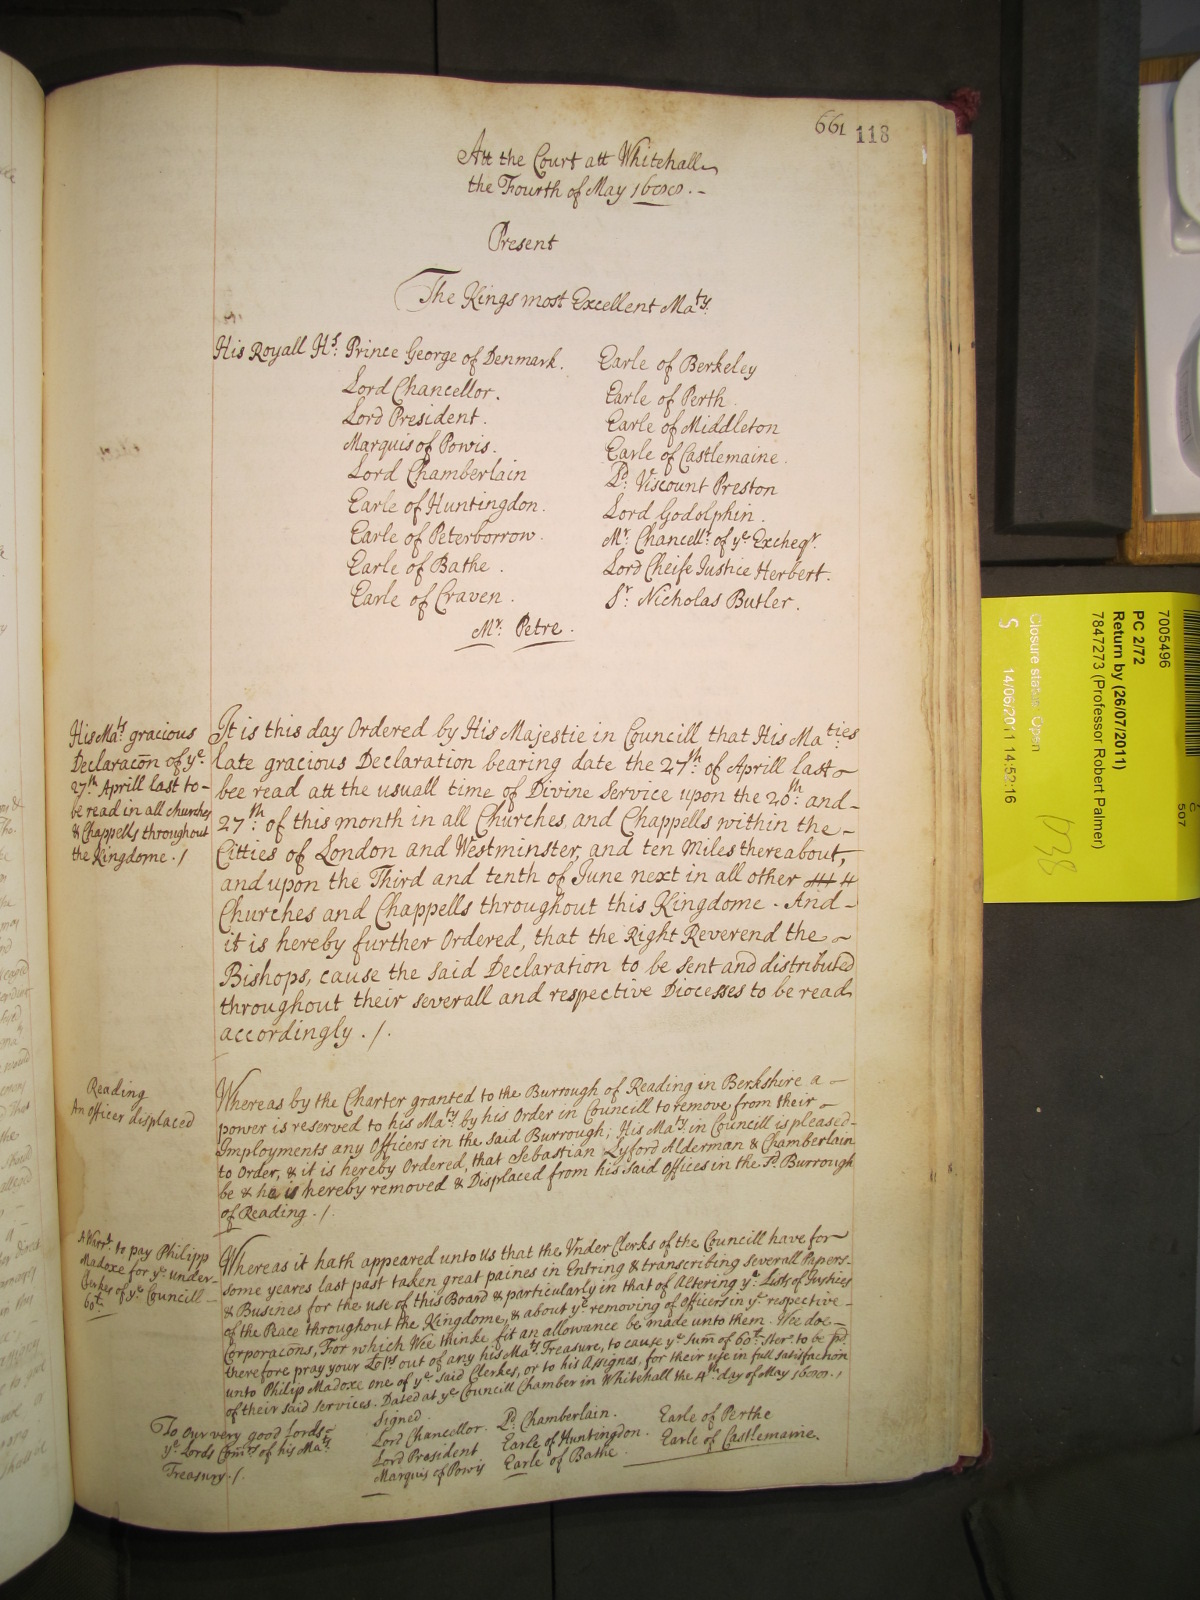 661 118
Att the Court att Whitehall
the Fourth of May 1688.-
Present
The Kings most Excellent Ma:ty
His Royall Hs: Prince George of Denmark.
Lord Chancellor.
Lord President.
Marquis of Powis.
Lord Chamberlain
Earle of Huntingdon.
Earle of Peterborrow.
Earle of Bathe.
Earle of Craven.
Earle of Berkeley
Earle of Perth
Earle of Middleton
Earle of Castlemaine.
Ld: Viscount Preston
Lord Godolphin.
Mr: Chancellr: of ye Excheqr.
Lord Cheife Justice Herbert.
Sr: Nicholas Butler.
Mr: Petre.
His Mats: gracious
Declaracōn of ye
27th Aprill last to-
be read in all churches
& Chappells throughout
the Kingdome ./
It is this day Ordered by His Majestie in Councill that His Maties
late gracious Declaration bearing date the 27th: of Aprill last
bee read att the usuall time of Divine Service upon the 20th: and-
27th: of this month in all Churches, and Chappells within the-
Citties of London and Westminster, and ten Miles thereabout,
and upon the Third and tenth of June next in all other
Churches and Chappells throughout this Kingdome - And-
it is hereby further Ordered, that the Right Reverend the-
Bishops, cause the said Declaration to be sent and distributed
throughout their severall and respective Diocesses to be read
accordingly ./.
Reading
An Officer displaced
Whereas by the Charter granted to the Burrough of Reading in Berkshire a-
power is reserved to his Maty by his Order in Councill to remove from their-
Imployments any Officers in the said Burrough; His Maty in Councill is pleased-
to Order, & it is hereby Ordered, that Sebastian Lyford Alderman & Chamberlain
be & he is hereby removed & Displaced from his said Offices in the sd Burrough
of Reading ./.
A Warrt. to pay Philipp
Madoxe for ye under-
Clerkes of ye Councill-
60l:
Whereas it hath appeared unto us that the Under Clerks of the Councill have for
some yeares last past taken great paines in Entring & transcribing severall Papers-
& Busines for the use of this Board & particularly in that of Altering ye Lists of Justices
of the Peace throughout the Kingdome, & about ye removing of Officers in ye respective-
Corporacons, For which Wee thinke fit an allowance be made unto them. Wee doe-
therefore pray your Lopps out of any his Mats Treasure, to cause ye sum̄ of 60l: Ster: to be pd:
unto Philip Madoxe one of ye said Clerkes, or to his Assignes, for their use in full satisfaction
of their said services. Dated at ye Councill Chamber in Whitehall the 4th: day of May 1688./
To our very good Lords
ye Lords Com̄rs of his Mats
Treasury./.
Signed
Lord Chancellor.
Lord President
Marquis of Powis
Ld: Chamberlain.
Earle of Huntingdon.
Earle of Bathe
Earle of Perthe
Earle of Castlemaine.
7005496
PC 2/72
Return by (26/07/2011)
7847273 (Professor Robert Palmer)
Closure status: Open
S 14/06/2011 14:52:16
C
507